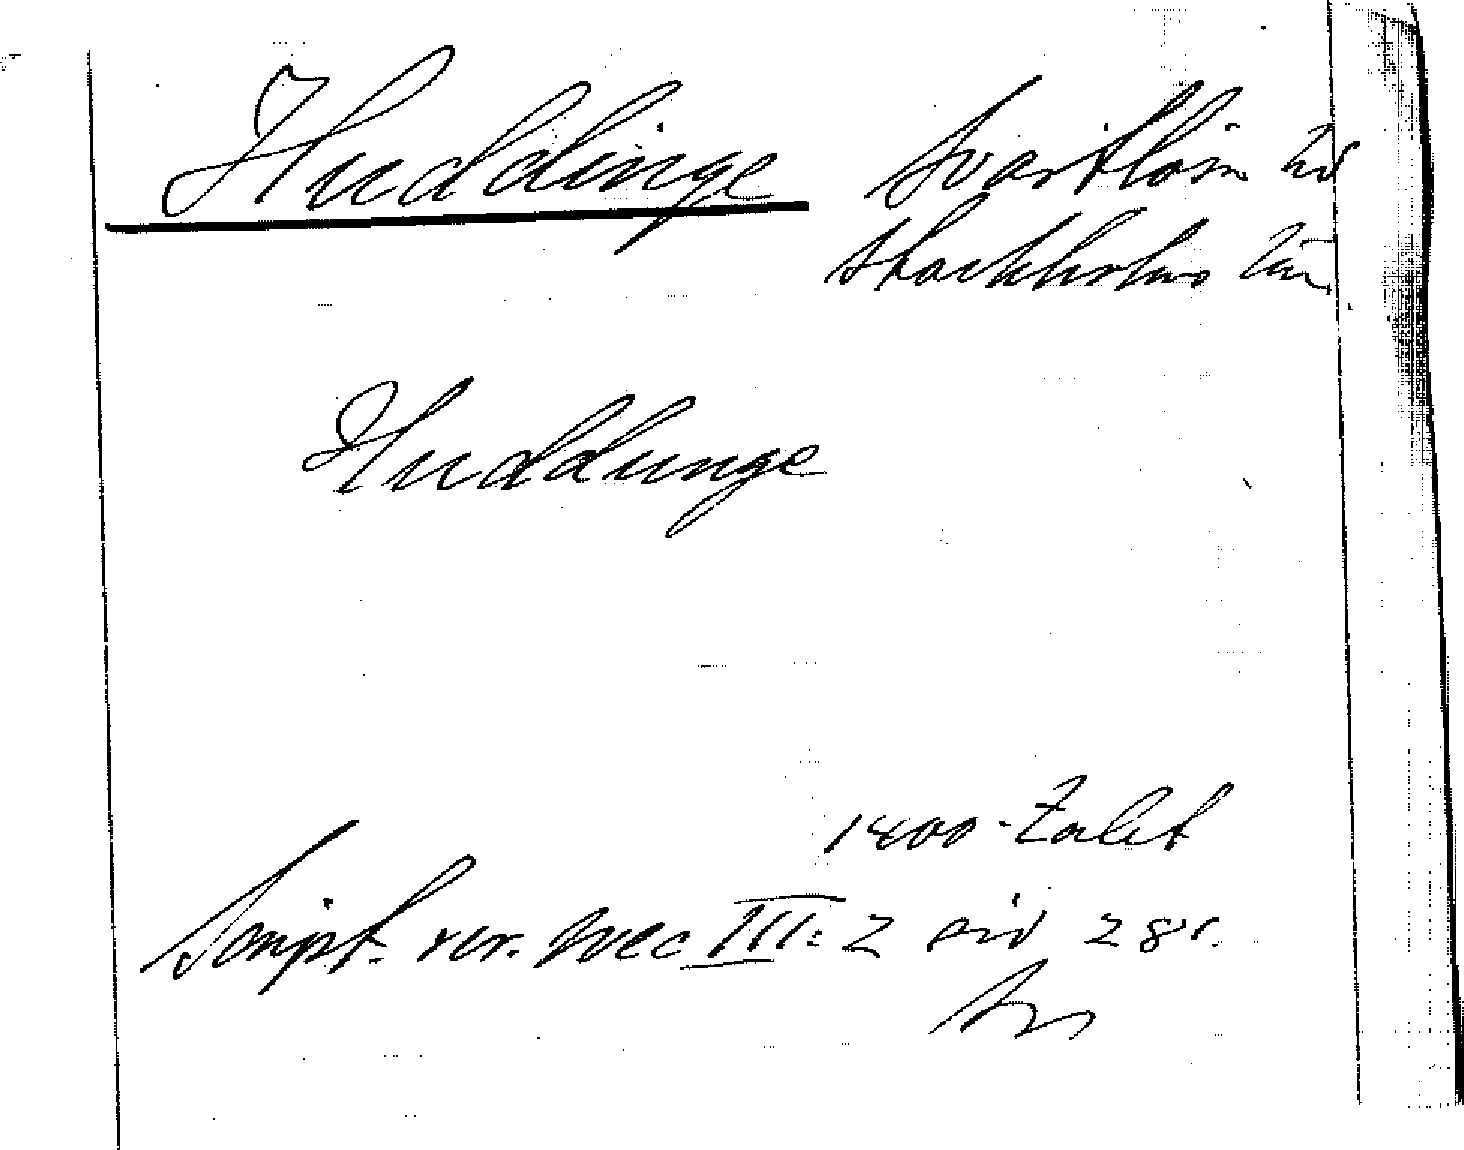 Huddinge Svartlösa hd
Stockholms län
Huddunge
1400-talet
Script. rer. svec III: 2 sid 281.